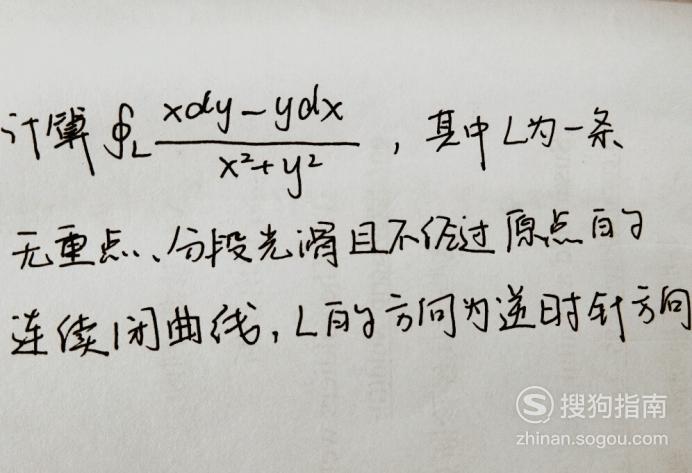 计算 ∮_L \frac{xdy-ydx}{x²+y²}，其中L为一条
无重点、分段光滑且不经过原点的
连续闭曲线，L的方向为逆时针方向
S 搜狗指南
zhinan.sogou.com